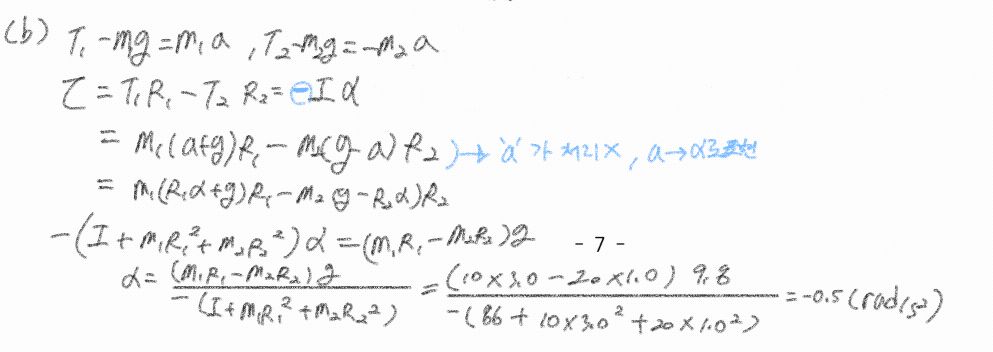 (b) T₁ - m₁g = m₁a , T₂ - m₂g = -m₂a
τ = T₁R₁ - T₂ R₂ = -Iα
= m₁(a+g)R₁ - m₂(g-a)R₂ )→ 'a'가 처리X, a→α로표현
= m₁(R₁α+g)R₁ - m₂(g-R₂α)R₂
-(I + m₁R₁² + m₂R₂²)α = (m₁R₁ - m₂R₂)g
- 7 -
α = (m₁R₁ - m₂R₂)g / -(I + m₁R₁² + m₂R₂²) = (10×3.0 - 20×1.0) 9.8 / -(86 + 10×3.0² + 20×1.0²) = -0.5 (rad/s²)